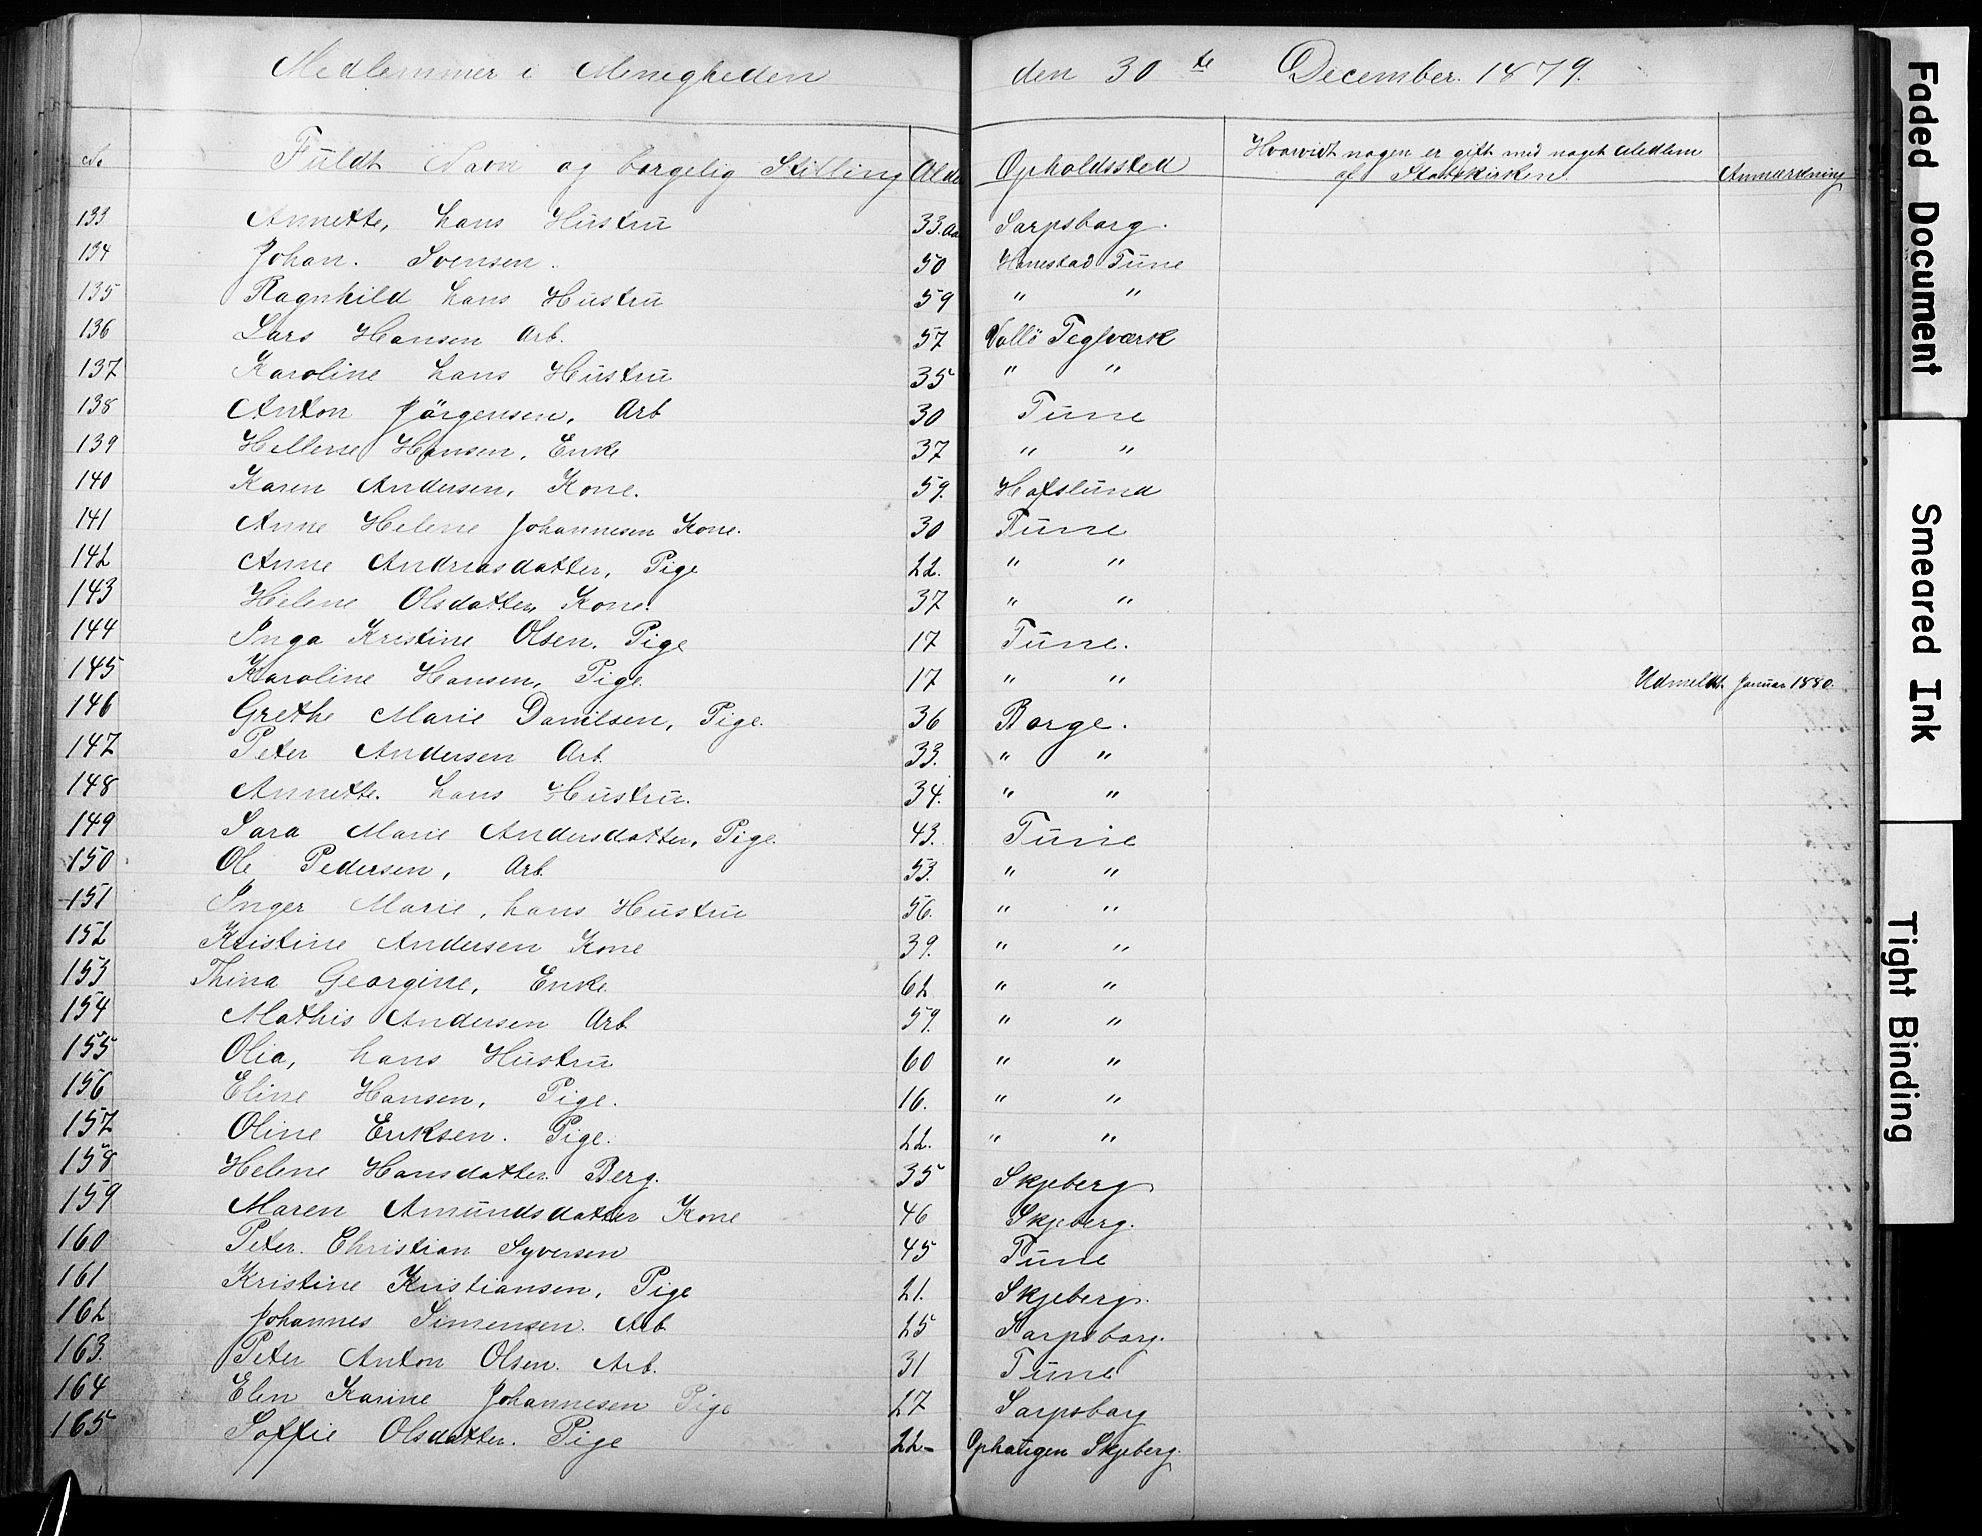 Medlemmer i Menigheden den 30 te December. 1879.
No Fuldt Navn og borgelig Stilling Alder Opholdssted Hvorvidt nogen er gift med noget Medlem af Statskirken Anmærdning
133 Annette, hans Hustru 33. Aar Sarpsborg.
134 Johan. Svensen. 50 Hanestad Tune
135 Ragnhild hans Hustru 59 " "
136 Lars Hansen Arb. 57 Vallö Teglværk
137 Karoline hans Hustru 35 " "
138 Anton Jörgensen, Arb 30 Tune
139 Hellene Hansen, Enke 37 " "
140 Karen Andersen, Kone. 59. Hafslund
141 Anne Helene Johannesen Kone. 30 Tune
142 Anne Andreasdatter, Pige 22. " "
143 Helene Olsdatter, Kone. 37 " "
144 Inga Kristine Olsen. Pige 17 Tune.
145 Karoline Hansen, Pige. 17 " " Udmeldt, Januar 1880.
146 Grethe Marie Danilsen, Pige. 36 Borge.
147 Peter Andersen Arb. 33. " "
148 Annette. hans Hustru. 34. " "
149 Sara Marie Andersdatter, Pige. 43. Tune
150 Ole Pedersen, Arb. 53. " "
151 Inger Marie, hans Hustru 56. " "
152 Kristine Andersen Kone 39. " "
153 Thina Georgine, Enke. 62 " "
154 Mathis Andersen Arb. 59. " "
155 Olia, hans Hustru 60 " "
156 Eline Hansen, Pige. 16. " "
157 Oline Eriksen. Pige. 22. " "
158 Helene Hansdatter. Berg. 35 Skjeberg
159 Maren Amundsdatter Kone 46 Skjeberg.
160 Peter. Christian Syversen 45 Tune
161 Kristine Kristiansen, Pige 21. Skjeberg.
162 Johannes Simensen. Arb. 25 Sarpsborg.
163. Peter Anton Olsen. Arb. 31 Tune
164 Elen Karine Johannesen Pige 27 Sarpsborg
165 Soffie Olsdatter. Pige 22- Ophaugen Skjeberg.
Faded Document
Smeared Ink
Tight Binding